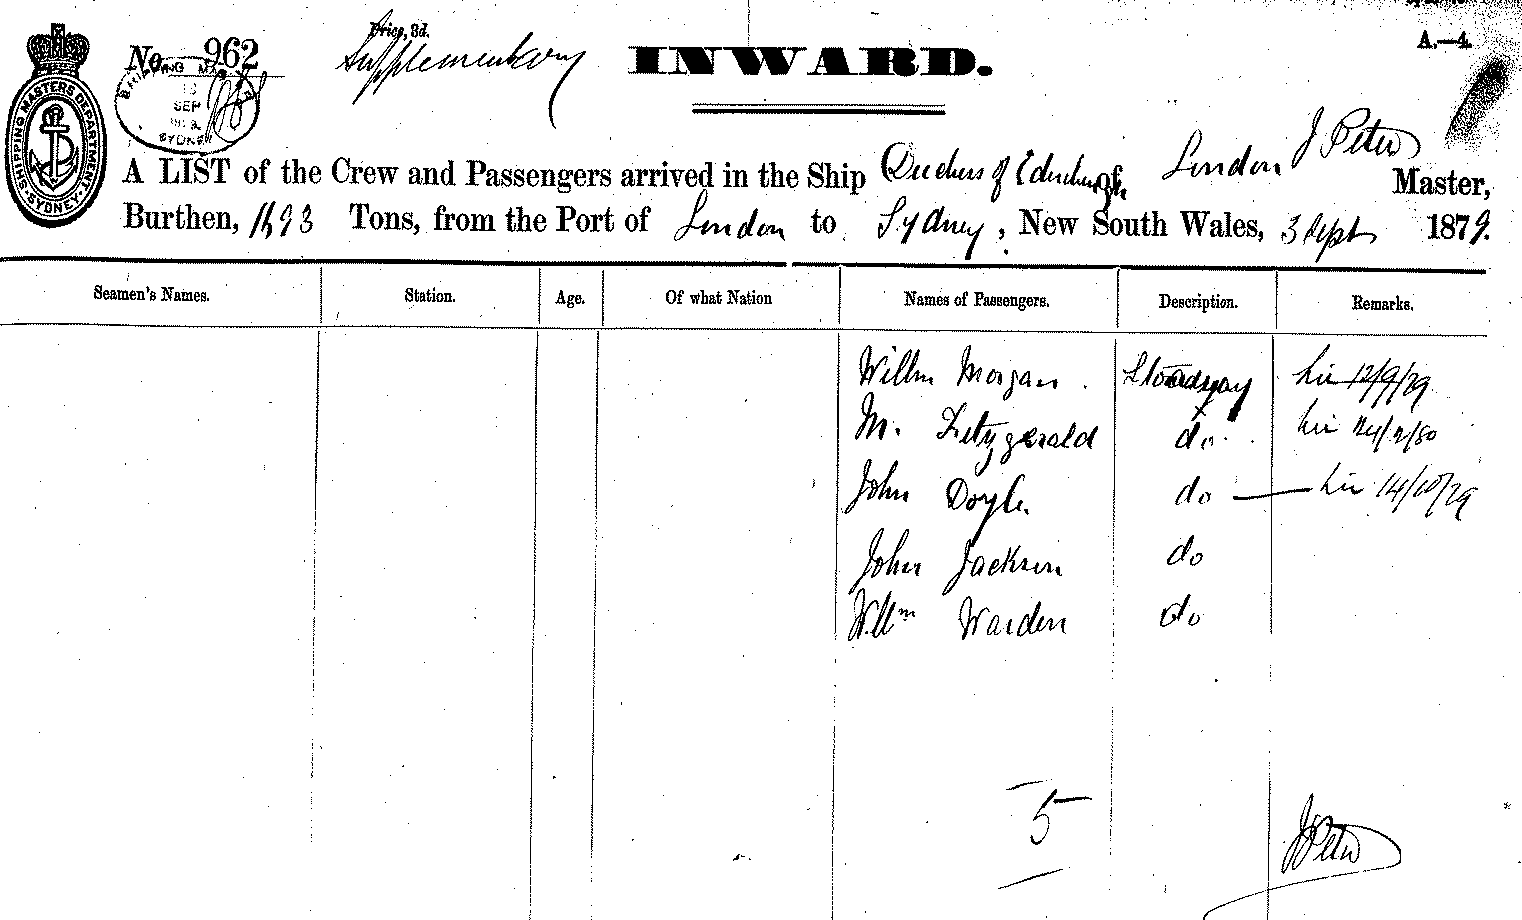 A.—4.
Price, 3d.
No. 962
Supplementary
INWARD.
SHIPPING MASTERS DEPARTMENT
SYDNEY.
SEP
SYDNEY
A LIST of the Crew and Passengers arrived in the Ship Duchess of Edinburgh, London J Peter Master,
Burthen, Tons, from the Port of London to Sydney, New South Wales, 3 Sept 1879.
Seamen's Names. Station. Age. Of what Nation Names of Passengers. Description. Remarks.
Willm Morgan. Stowaway 12/9/79
M. Fitzgerald do.
John Doyle do — 14/10/79
John Jackson do
Willm Warden do
5
J Peter